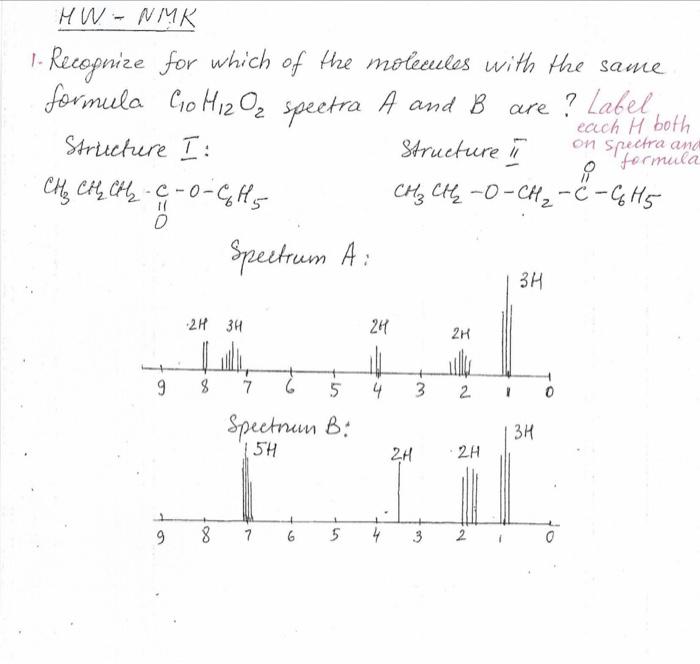 HW - NMR
1. Recognize for which of the molecules with the same
formula C10H12O2 spectra A and B are? Label
each H both
on spectra and
formula
Structure I:
Structure II
CH3 CH2 CH2 - C - O - C6H5
O
O
CH3 CH2 - O - CH2 - C - C6H5
Spectrum A:
3H
2H 3H 2H 2H
9 8 7 6 5 4 3 2 1 0
Spectrum B:
3H
5H 2H 2H
9 8 7 6 5 4 3 2 1 0